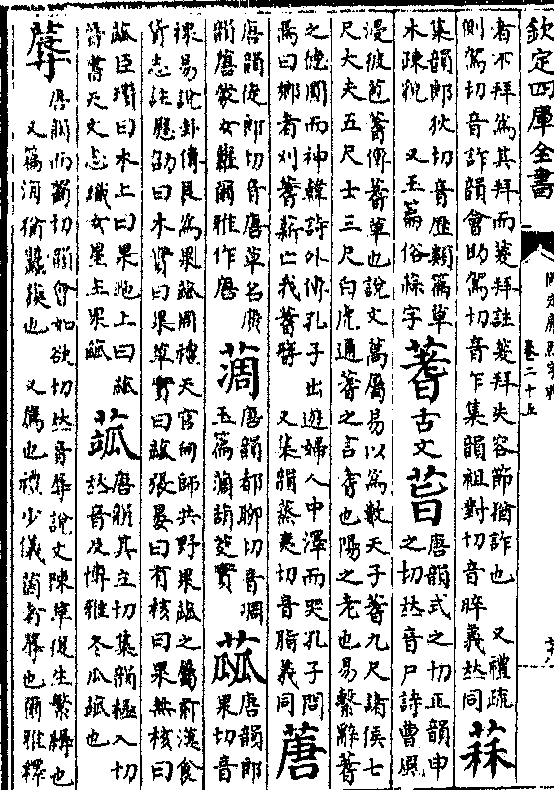 欽定四庫全書
卷二十五
者不拜為其拜而蓌拜註蓌拜失容節猶詐也 又禮疏
側駕切音詐韻會助駕切音乍集韻祖對切音晬義𠀤同 䔧
集韻郎狄切音歷類篇草
木疎貌 又玉篇俗蒢字 蓍 古文 𦳰 唐韻式之切正韻申
之切𠀤音尸詩曹風
浸彼苞蓍傳蓍草也說文蒿屬易以為數天子蓍九尺諸侯七
尺大夫五尺士三尺白虎通蓍之言耆也陽之老也易繫辭蓍
之德圓而神韓詩外傳孔子出遊婦人中澤而哭孔子問
焉曰鄉者刈蓍薪亡我蓍簪 又集韻蒸夷切音脂義同 蓎
唐韻徒郎切音唐草名廣
韻蓎蒙女蘿爾雅作唐 蔐 唐韻都聊切音凋
玉篇蔐葫茭實 蓏 唐韻郎
果切音
裸易說卦傳艮為果蓏周禮天官甸師共野果蓏之屬前漢食
貨志註應劭曰木實曰果草實曰蓏張晏曰有核曰果無核曰
蓏臣瓚曰木上曰果地上曰蓏
晉書天文志織女星主果蓏 蓛 唐韻其立切集韻極入切
𠀤音及博雅冬瓜蓏也
蓐 唐韻而蜀切韻會如欲切𠀤音辱說文陳草復生繁縟也
又篇海衕蠶蔟也 又薦也禮少儀茵席蓐也爾雅釋